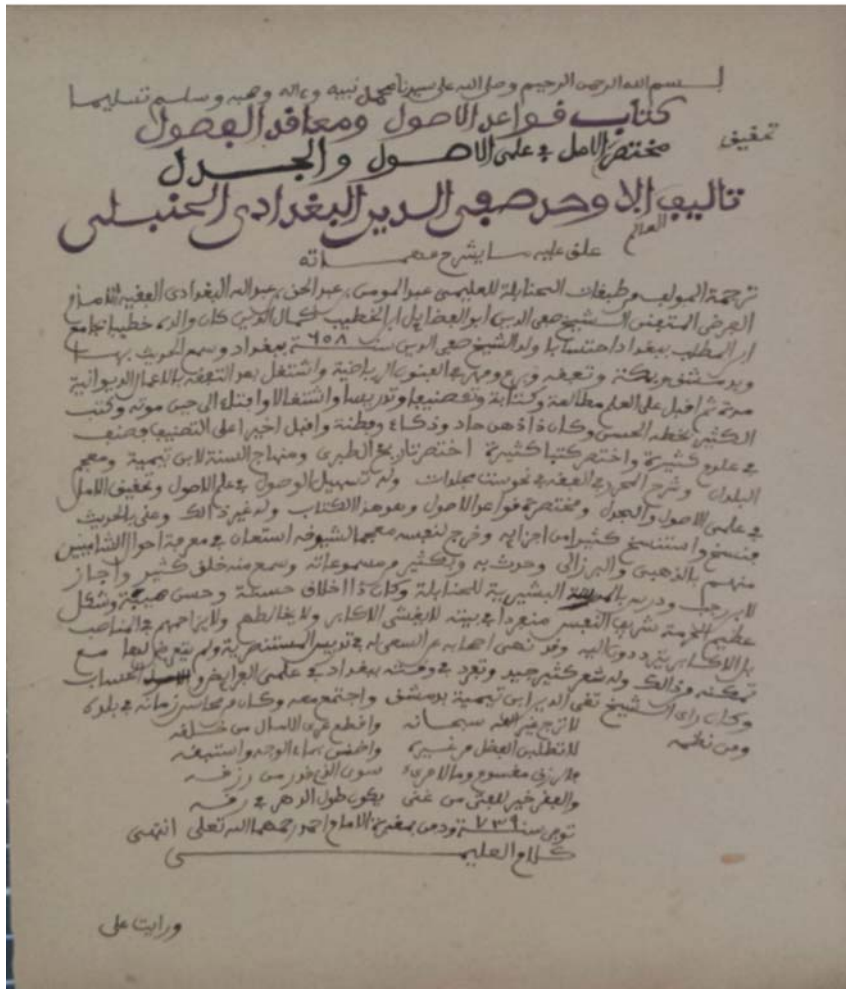 بسم الله الرحمن الرحيم وصلى الله على سيدنا محمد نبيه وءاله وصحبه وسلم تسليما
كتاب قواعد الاصول ومعاقد الفصول
مختصر تحقيق الامل في علمي الاصول والجدل
تاليف الاوحد العالم صفي الدين البغدادي الحنبلي
علق عليه ما يشرح مهماته
ترجمة المولف من طبقات الحنابلة للعليمي عبد المومن بن عبد الحق بن عبد الله البغدادي الفقيه الامام
الفرضي المتفنن الشيخ صفي الدين ابو الفضايل ابن الخطيب كمال الدين كان والده خطيبا بجامع
ابن المطلب ببغداد احتسابا ولد الشيخ صفي الدين سنة ٦٥٨ ببغداد وسمع الحديث بها
وبدمشق وبمكة وتفقه وبرع ومهر في الفنون الرياضية واشتغل بعد التفقه بالاعمال الديوانية
مدة ثم اقبل على العلم مطالعة وكتابة وتصنيفا وتدريسا واشتغالا وافتاء الى حين موته وكتب
الكثير بخطه الحسن وكان ذا ذهن حاد وذكاء وفطنة واقبل اخيرا على التصنيف فصنف
في علوم كثيرة واختصر كتبا كثيرة اختصر تاريخ الطبري ومنهاج السنة لابن تيمية ومعجم
البلدان وشرح المحرر في الفقه في نحو ست مجلدات وله تسهيل الوصول في علم الاصول وتحقيق الامل
في علمي الاصول والجدل ومختصره قواعد الاصول وهو هذا الكتاب وله غير ذالك وعني بالحديث
فنسخ واستنسخ كثيرا من اجزايه وخرج لنفسه معجما لشيوخه استعان في معرفة احوال الشاميين
منهم بالذهبي والبرزالي وحدث به وبكثير من مسموعاته وسمع منه خلق كثير واجاز
لابن رجب ودرس بالمدرسة البشيرية للحنابلة وكان ذا اخلاق حسنة وحسن هيبة وشكل
عظيم الحرمة شريف النفس منفردا في بيته لا يغشى الاكابر ولا يخالطهم ولا يزاحمهم في المناصب
بل الاكابر يترددون اليه وقد نهى اصحابه عن السعي له في تدريس المستنصرية ولم يتعرض لها مع
تمكنه من ذالك وله شعر كثير جيد وتفرد في وقته ببغداد في علمي الفرايض والحساب
وكان راى الشيخ تقي الدين ابن تيمية بدمشق واجتمع معه وكان من محاسن زمانه في بلده
ومن نظمه لا ترج غير الله سبحانه واقطع عرى الامال من خلقه
لا تطلبن الفضل من غيره واضنن بماء الوجه واستبقه
فالرزق مقسوم وما لامرىء سوى الذي قدر من رزقه
والفقر خير للفتى من غنى يكون طول الدهر في رقه
توفي سنة ٧٣٩ ودفن بمقبرة الامام احمد رحمهما الله تعلى انتهى
كلام العليمي
ورايت على